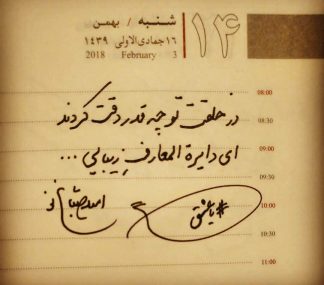 شنبه / بهمن
۱۴
۱۶ جمادی‌الاولی ۱۴۳۹
2018 February 3
08:00
در خلقت تو چه قدر دقت کردند
08:30
ای دایرة المعارف زیبایی ...
09:00
09:30
10:00
10:30
11:00